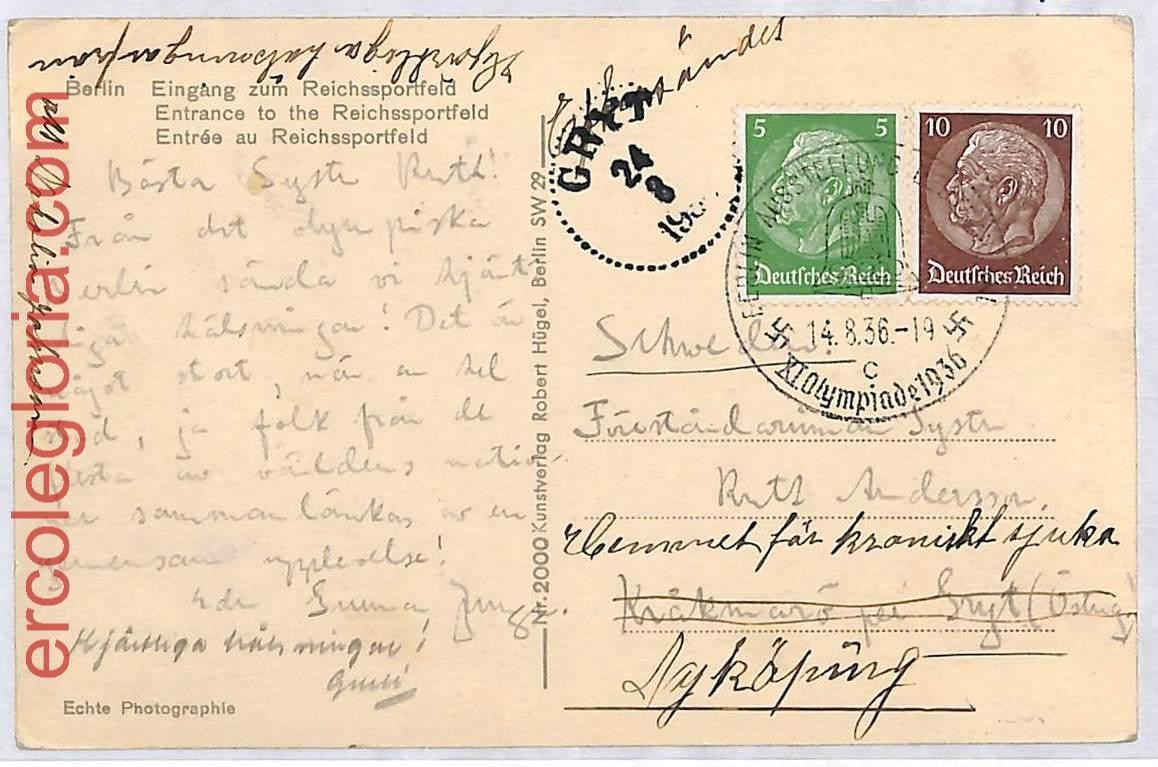 Hjärtliga hälsningar från
Berlin Eingang zum Reichssportfeld
Entrance to the Reichssportfeld
Entrée au Reichssportfeld
Bästa Syster Ruth!
Från det olympiska
sända vi hjärt
liga hälsningar! Det är
något stort, när en hel
ja folk från de
flesta av världens natio
ner sammanlänkas av en
gemensam upplevelse!
Gunnar
Hjärtliga hälsningar!
Echte Photographie
Nr. 2000 Kunstverlag Robert Hügel, Berlin SW 29
Eftersändes
GRYT
24
8
5 5
Deutsches Reich
10 10
Deutsches Reich
BERLIN AUSSTELLUNG
14.8.36.-19
c
XI Olympiade 1936
Schweden.
Föreståndarinnan Syster
Ruth Andersson
Hemmet för kroniskt sjuka
Kråkmarö pei Gryt (Österg)
Nyköping
ercolegloria.com